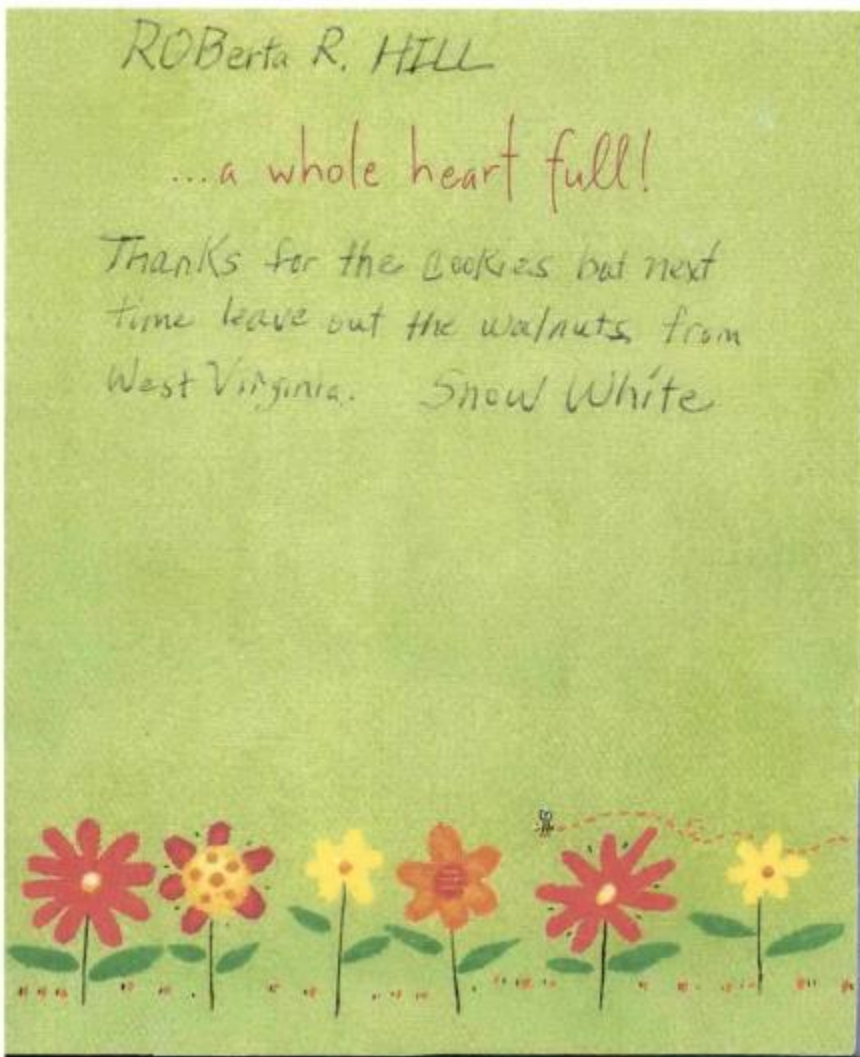 ROBerta R. HILL
...a whole heart full!
Thanks for the Cookies but next
time leave out the walnuts from
West Virginia. Snow White